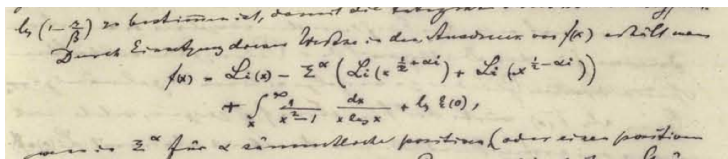 lg (1 - s/β) zu bestimmen ist, damit die
Durch Einsetzung dieses Werthes in den Ausdruck von f(x) erhält man
f(x) = Li(x) - Σ^α (Li(x^{½+αi}) + Li(x^{½-αi}))
+ ∫_x^∞ 1/(x²-1) dx/(x lg x) + lg ξ(0),
wenn in Σ^α für α sämmtliche positiven (oder einen positiven